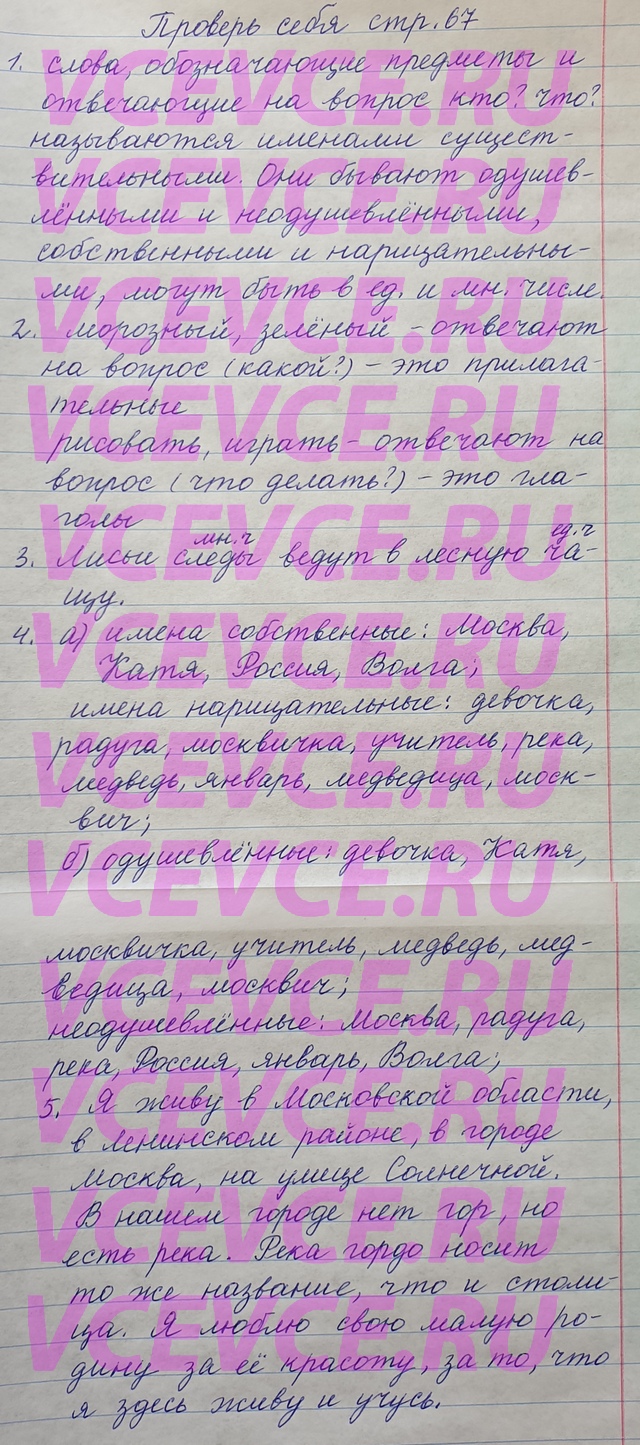 Проверь себя стр. 67
1. слова, обозначающие предметы и
отвечающие на вопрос кто? что?
называются именами сущест-
вительными. Они бывают одушев-
лёнными и неодушевлёнными,
собственными и нарицательны-
ми, могут быть в ед. и мн. числе.
2. морозный, зелёный - отвечают
на вопрос (какой?) - это прилага-
тельные
рисовать, играть - отвечают на
вопрос (что делать?) - это гла-
голы
мн.ч ед.ч
3. Лисьи следы ведут в лесную ча-
щу.
4. а) имена собственные: Москва,
Катя, Россия, Волга;
имена нарицательные: девочка,
радуга, москвичка, учитель, река,
медведь, январь, медведица, моск-
вич;
б) одушевлённые: девочка, Катя,
москвичка, учитель, медведь, мед-
ведица, москвич;
неодушевлённые: Москва, радуга,
река, Россия, январь, Волга;
5. Я живу в Московской области,
в Ленинском районе, в городе
Москва, на улице Солнечной.
В нашем городе нет гор, но
есть река. Река гордо носит
то же название, что и столи-
ца. Я люблю свою малую ро-
дину за её красоту, за то, что
я здесь живу и учусь.
VCEVCE.RU
VCEVCE.RU
VCEVCE.RU
VCEVCE.RU
VCEVCE.RU
VCEVCE.RU
VCEVCE.RU
VCEVCE.RU
VCEVCE.RU
VCEVCE.RU
VCEVCE.RU
VCEVCE.RU